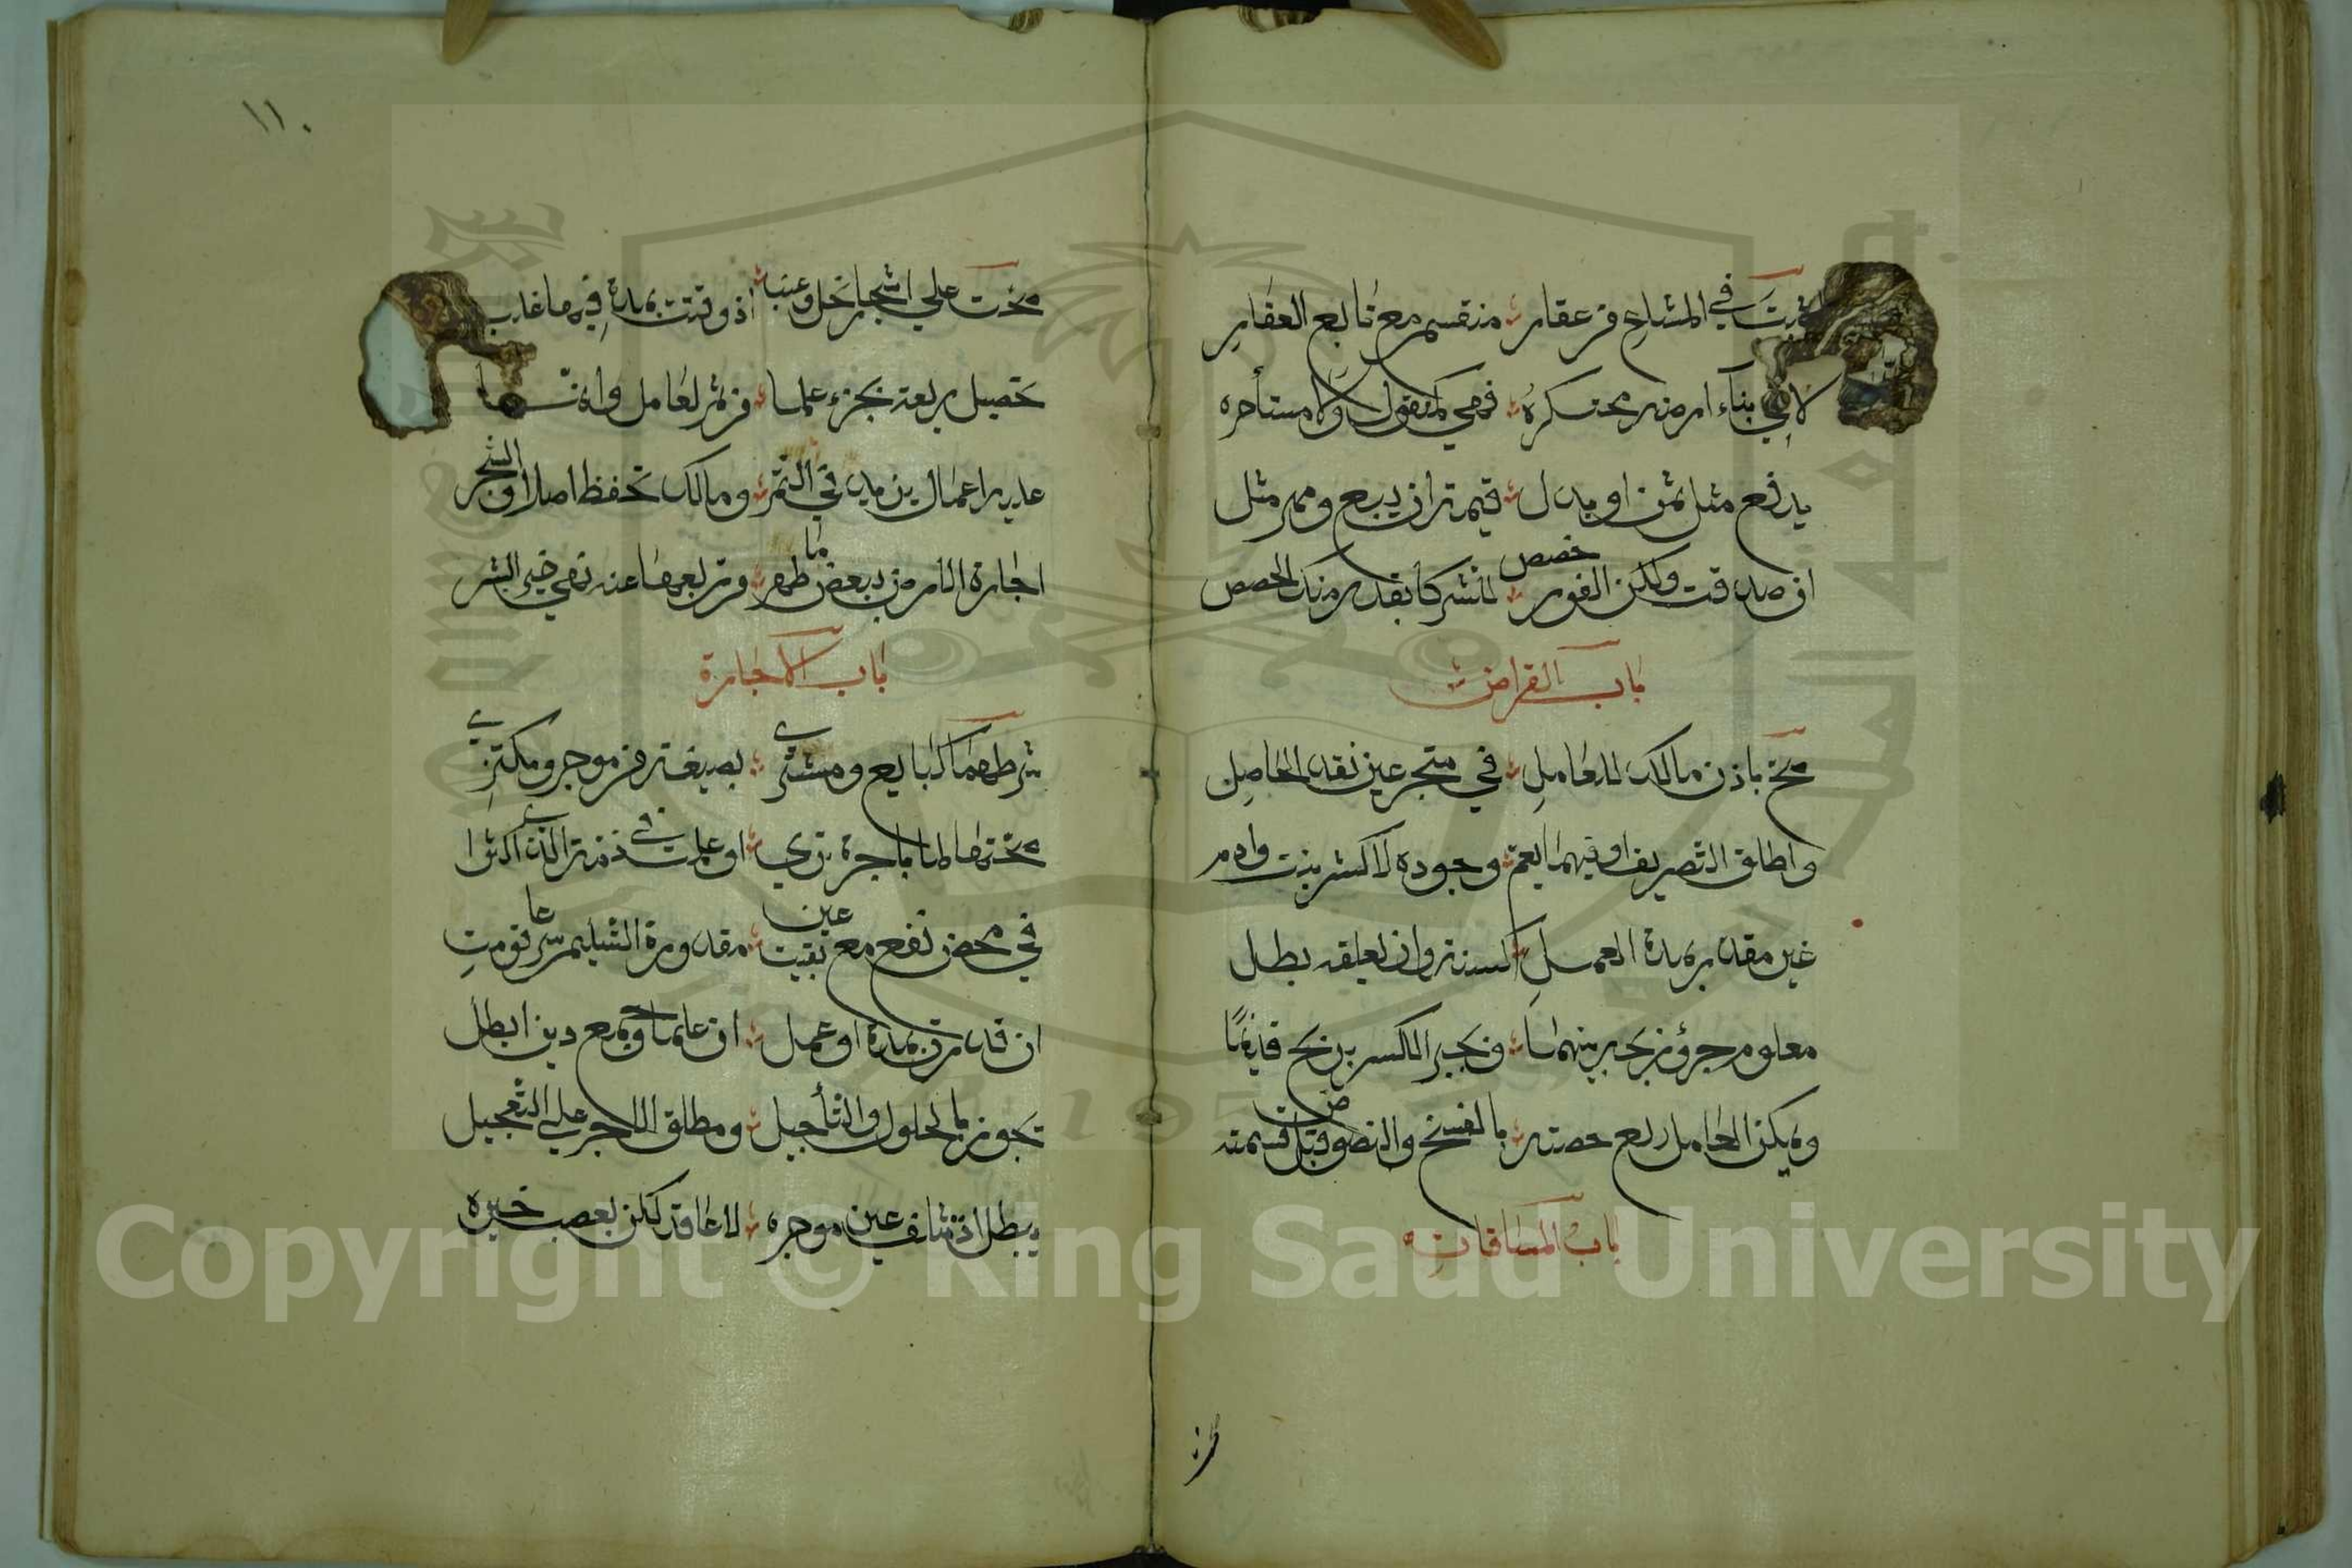 تثبت في المشاع من عقار منقسم مع تابع العقار
لا في بناء ارضه محتكره فهي كمنقول ولا مستأجره
يدفع مثل ثمن او بدل قيمته ان بيع ومهر مثل
ان صدقت ولكن الفور خصص للشركا بقدر ملك الحصص
باب القراض
صح باذن مالك للعامل في متجر عين نقد الحاصل
واطلق التصريف او فيما يعم وجوده لا كشر بنت وام
غير مقدر مدة العمل كسنة وان يعلقه بطل
معلوم جزؤ ربحه بينهما ويجبر الكسر بربح قد نما
ويملك العامل ربع حصته بالفسخ والنضوض قبل قسمته
باب المساقات
صحت علي اشجار نخل وعنب اذ وقتت بمدة فيها غلب
تحصيل ريعه بجزء علما من ثمر لعامل وانما
عليه اعمال تزيد في الثمر ومالك تحفظ اصلا والشجر
اجارة الارض ببعض ما ظهر من ريعها عنه نهي خير البشر
باب الاجارة
شرطهما كبايع ومشتري بصيغة من موجر ومكتري
صحتها اما باجرة تري او علمت في ذمة الذي اكترا
في محض نفع مع عين بقيت مقدورة التسليم شرعا قومت
ان قدرت بمدة او عمل ان علما وجمع دين ابطل
تجوز بالحلول والتأجيل ومطلق الاجر علي التعجيل
يبطل اذ تتلف عين موجره لا عاقد لكن بغصب خيره
١١٠
Copyright © King Saud University